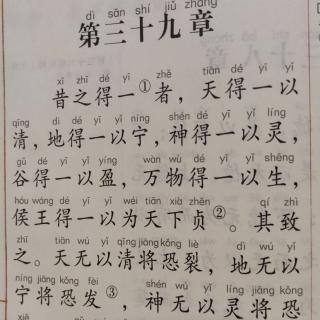 dì sān shí jiǔ zhāng
第三十九章
xī zhī dé yī zhě tiān dé yī yǐ
昔之得一①者，天得一以
qīng dì dé yī yǐ níng shén dé yī yǐ líng
清，地得一以宁，神得一以灵，
gǔ dé yī yǐ yíng wàn wù dé yī yǐ shēng
谷得一以盈，万物得一以生，
hóu wáng dé yī yǐ wéi tiān xià zhēn qí zhì
侯王得一以为天下贞②。其致
zhī tiān wú yǐ qīng jiāng kǒng liè dì wú yǐ
之。天无以清将恐裂，地无以
níng jiāng kǒng fèi shén wú yǐ líng jiāng kǒng
宁将恐发③，神无以灵将恐